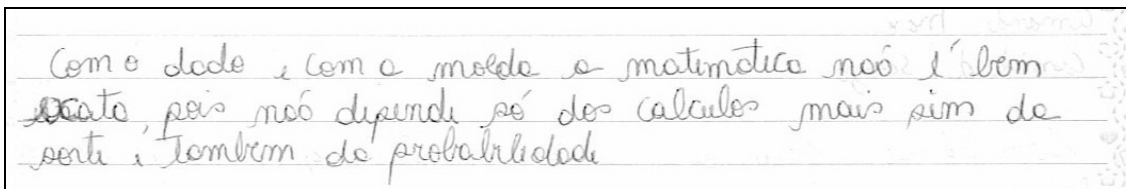 Com o dado e com a moeda a matematica naõ é bem
exata, pois naõ depende só dos calculos mais sim da
sorte e Tambem da probabilidade